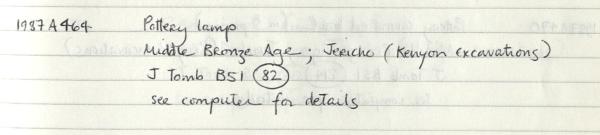 1987A464 Pottery lamp
Middle Bronze Age; Jericho (Kenyon excavations)
J Tomb B51 82
see computer for details